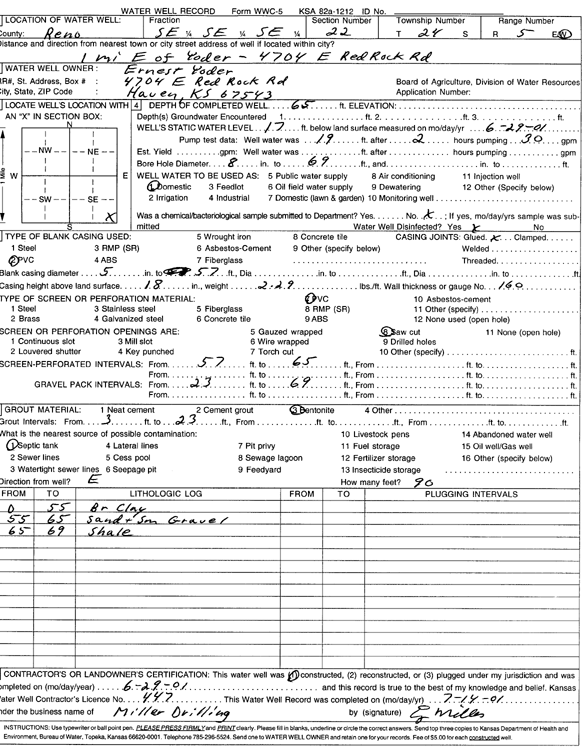 WATER WELL RECORD Form WWC-5 KSA 82a-1212 ID No.
LOCATION OF WATER WELL: Fraction Section Number Township Number Range Number
County: Reno SE ¼ SE ¼ SE ¼ 22 T 24 S R 5 E/W
Distance and direction from nearest town or city street address of well if located within city?
1 mi E of Yoder - 4704 E Red Rock Rd
WATER WELL OWNER: Ernest Yoder
RR#, St. Address, Box # : 4704 E Red Rock Rd Board of Agriculture, Division of Water Resources
City, State, ZIP Code : Haven, KS 67543 Application Number:
LOCATE WELL'S LOCATION WITH 4 DEPTH OF COMPLETED WELL 65 ft. ELEVATION:
AN "X" IN SECTION BOX: Depth(s) Groundwater Encountered 1. ft. 2. ft. 3. ft.
N WELL'S STATIC WATER LEVEL 17 ft. below land surface measured on mo/day/yr 6-29-01
Pump test data: Well water was 19 ft. after 2 hours pumping 30 gpm
NW NE Est. Yield gpm: Well water was ft. after hours pumping gpm
1 Mile W E Bore Hole Diameter 8 in. to 69 ft., and in. to ft.
WELL WATER TO BE USED AS: 5 Public water supply 8 Air conditioning 11 Injection well
SW SE 1 Domestic 3 Feedlot 6 Oil field water supply 9 Dewatering 12 Other (Specify below)
X 2 Irrigation 4 Industrial 7 Domestic (lawn & garden) 10 Monitoring well
S Was a chemical/bacteriological sample submitted to Department? Yes No X ; If yes, mo/day/yrs sample was sub-
mitted Water Well Disinfected? Yes X No
TYPE OF BLANK CASING USED: 5 Wrought iron 8 Concrete tile CASING JOINTS: Glued X Clamped
1 Steel 3 RMP (SR) 6 Asbestos-Cement 9 Other (specify below) Welded
2 PVC 4 ABS 7 Fiberglass Threaded
Blank casing diameter 5 in. to 57 ft., Dia in. to ft., Dia in. to ft.
Casing height above land surface 18 in., weight 2.29 lbs./ft. Wall thickness or gauge No. 160
TYPE OF SCREEN OR PERFORATION MATERIAL: 7 PVC 10 Asbestos-cement
1 Steel 3 Stainless steel 5 Fiberglass 8 RMP (SR) 11 Other (specify)
2 Brass 4 Galvanized steel 6 Concrete tile 9 ABS 12 None used (open hole)
SCREEN OR PERFORATION OPENINGS ARE: 5 Gauzed wrapped 8 Saw cut 11 None (open hole)
1 Continuous slot 3 Mill slot 6 Wire wrapped 9 Drilled holes
2 Louvered shutter 4 Key punched 7 Torch cut 10 Other (specify) ft.
SCREEN-PERFORATED INTERVALS: From 57 ft. to 65 ft., From ft. to ft.
From ft. to ft., From ft. to ft.
GRAVEL PACK INTERVALS: From 23 ft. to 69 ft., From ft. to ft.
From ft. to ft., From ft. to ft.
GROUT MATERIAL: 1 Neat cement 2 Cement grout 3 Bentonite 4 Other
Grout Intervals: From 3 ft. to 23 ft., From ft. to ft., From ft. to ft.
What is the nearest source of possible contamination: 10 Livestock pens 14 Abandoned water well
1 Septic tank 4 Lateral lines 7 Pit privy 11 Fuel storage 15 Oil well/Gas well
2 Sewer lines 5 Cess pool 8 Sewage lagoon 12 Fertilizer storage 16 Other (specify below)
3 Watertight sewer lines 6 Seepage pit 9 Feedyard 13 Insecticide storage
Direction from well? E How many feet? 90
FROM TO LITHOLOGIC LOG FROM TO PLUGGING INTERVALS
0 55 Br Clay
55 65 Sand + Sm Gravel
65 69 Shale
CONTRACTOR'S OR LANDOWNER'S CERTIFICATION: This water well was (1) constructed, (2) reconstructed, or (3) plugged under my jurisdiction and was
completed on (mo/day/year) 6-29-01 and this record is true to the best of my knowledge and belief. Kansas
Water Well Contractor's Licence No. 447 This Water Well Record was completed on (mo/day/yr) 7-14-01
under the business name of Miller Drilling by (signature) Miller
INSTRUCTIONS: Use typewriter or ball point pen. PLEASE PRESS FIRMLY and PRINT clearly. Please fill in blanks, underline or circle the correct answers. Send top three copies to Kansas Department of Health and
Environment, Bureau of Water, Topeka, Kansas 66620-0001. Telephone 785-296-5524. Send one to WATER WELL OWNER and retain one for your records. Fee of $5.00 for each constructed well.